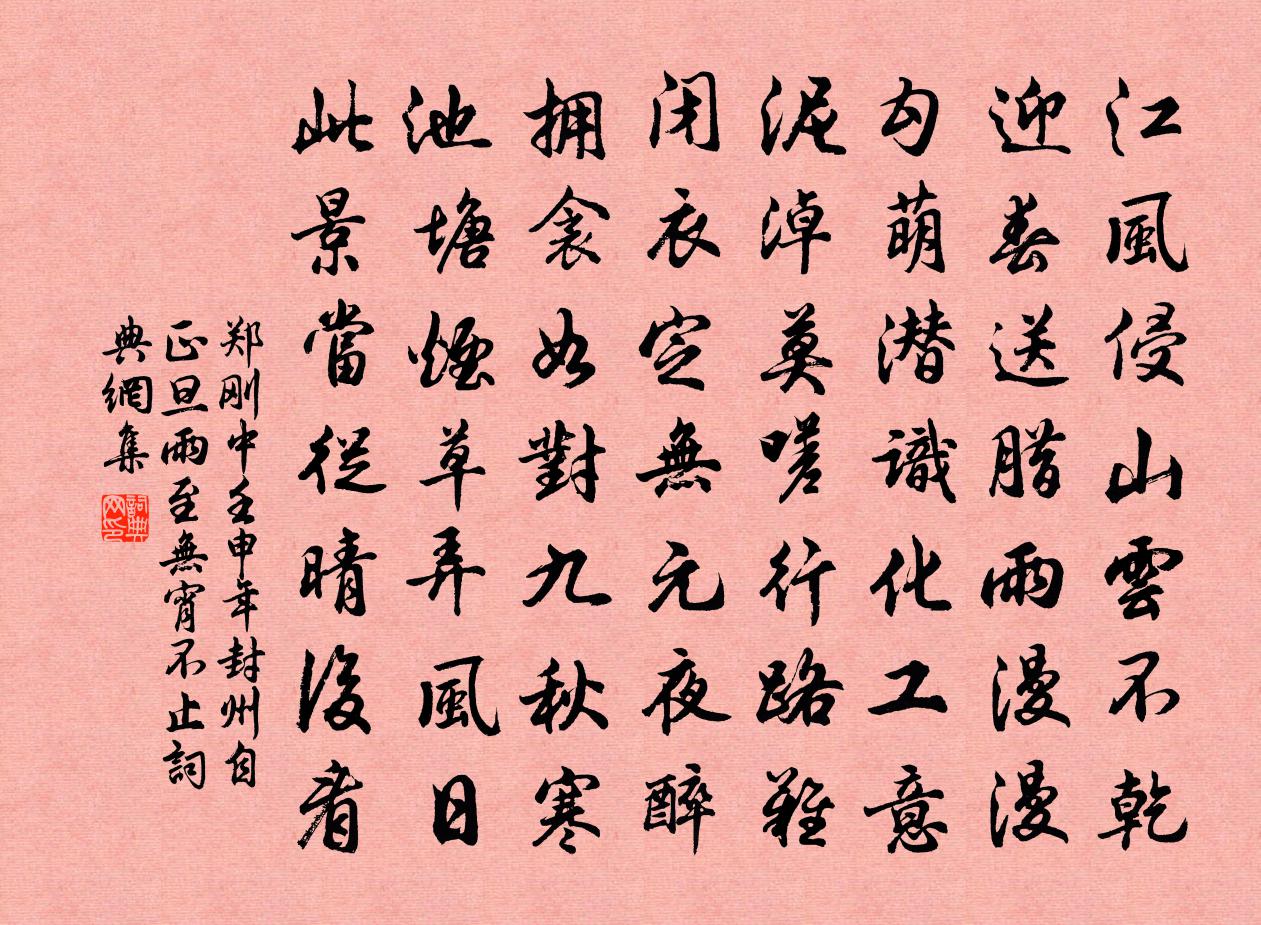 江風侵山雲不乾
迎春送腊雨漫漫
勾萌潜識化工意
泥淖莫嗟行路難
闭衣定無元夜醉
拥衾如對九秋寒
池塘煙草弄風日
此景當從晴後看
郑刚中壬申年封州自
正旦雨至無宵不止詞
典網集
詞典网印